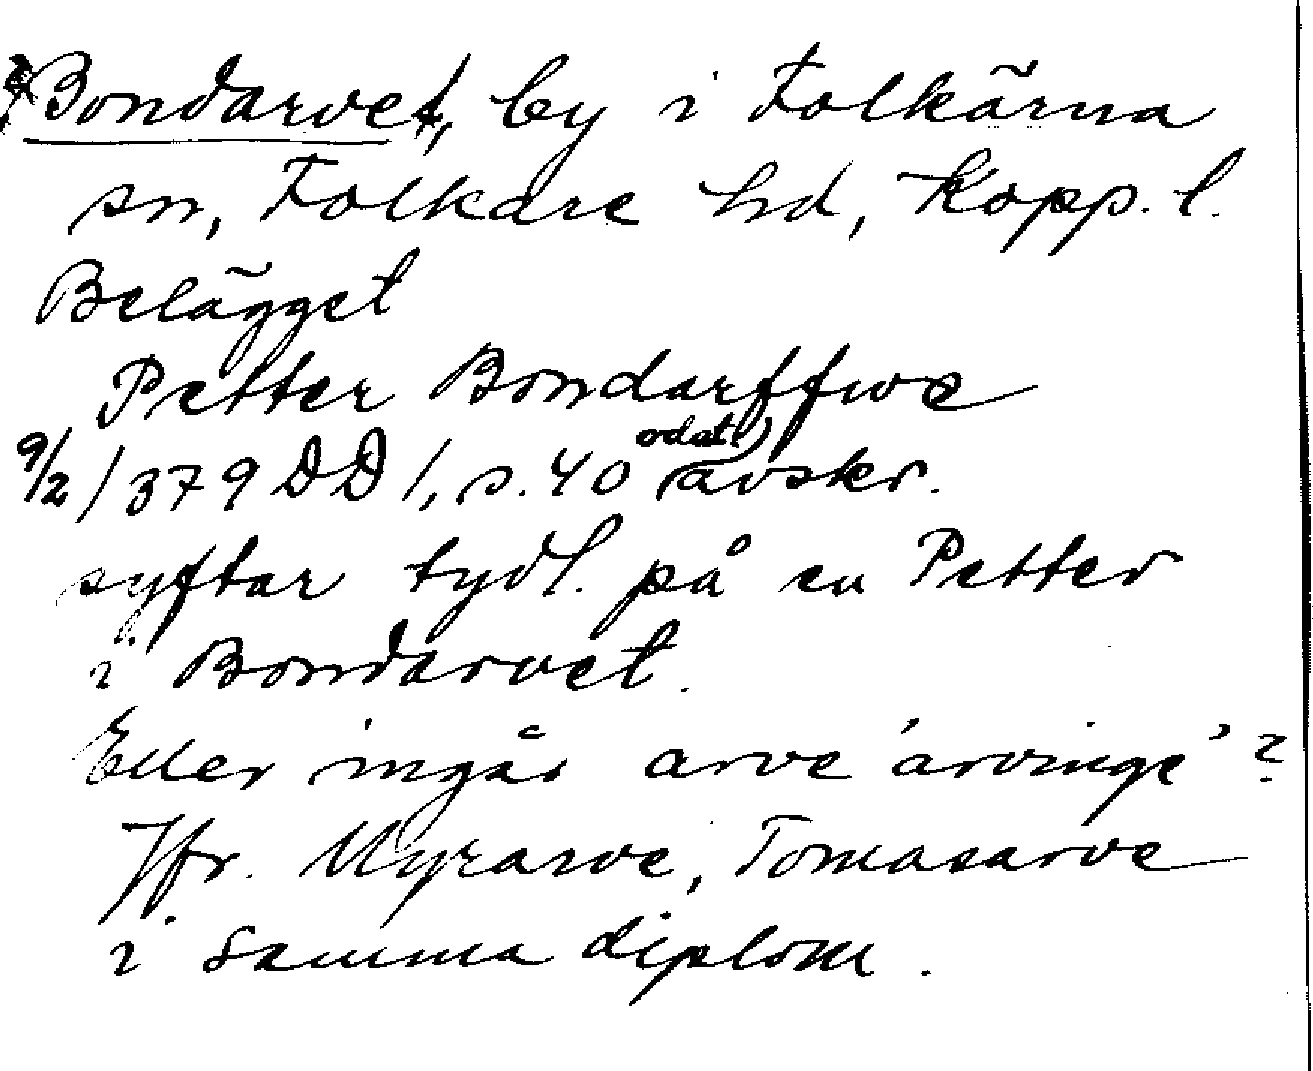 Bondarvet, by i Folkärna
sn, Folkare hd, Kopp. l.
Belägget
Petter Bondarffwe
9/2 1379 DD 1, s. 40 (odat.) avskr.
syftar tydl. på en Petter
i Bondarvet.
Eller ingår arve 'arvinge'?
Jfr. Myrarve, Tomasarve
i samma diplom.